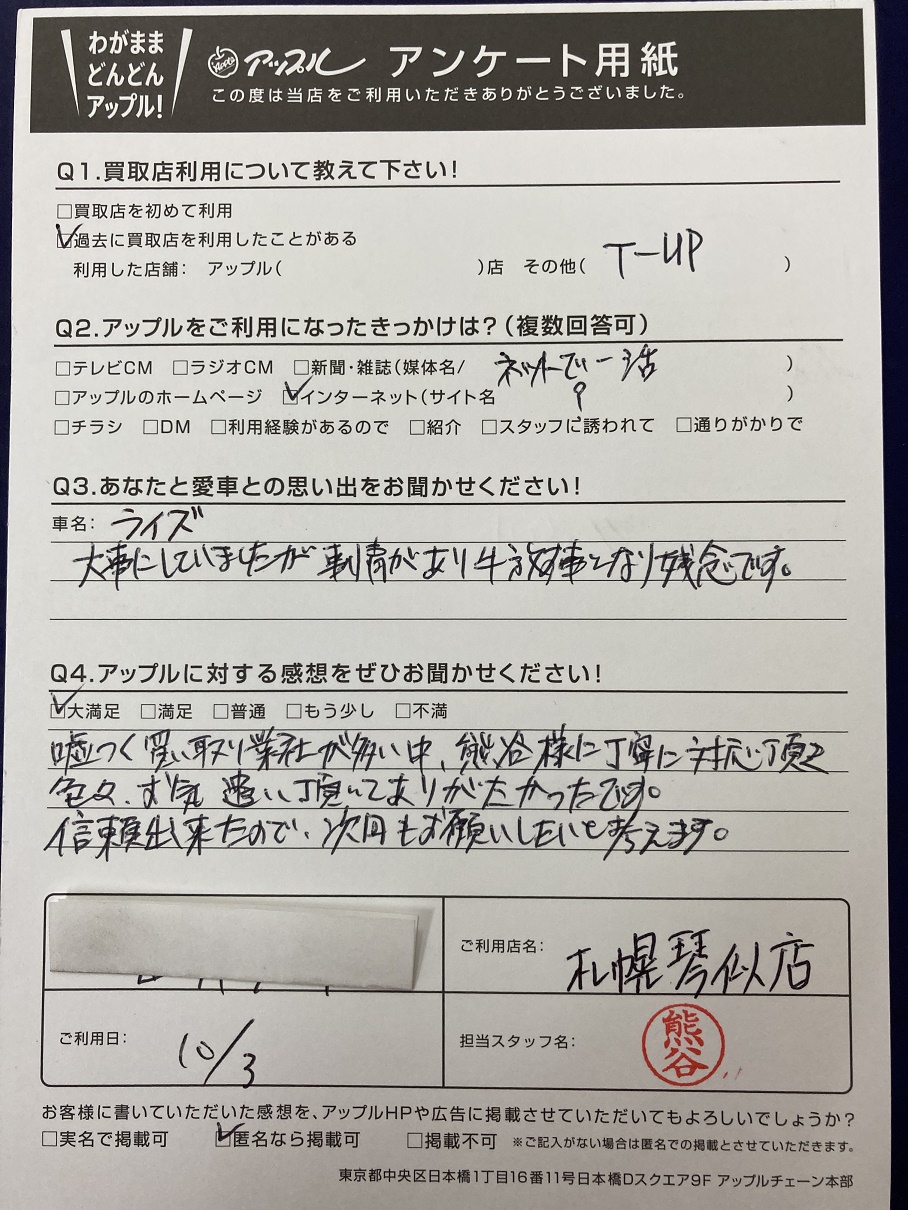 わがまま
どんどん
アップル!
Apple アップル アンケート用紙
この度は当店をご利用いただきありがとうございました。
Q1.買取店利用について教えて下さい!
□買取店を初めて利用
☑過去に買取店を利用したことがある
利用した店舗: アップル( )店 その他( T-UP )
Q2.アップルをご利用になったきっかけは?(複数回答可)
□テレビCM □ラジオCM □新聞・雑誌(媒体名/ )
ネットで一括
?
□アップルのホームページ ☑インターネット(サイト名 )
□チラシ □DM □利用経験があるので □紹介 □スタッフに誘われて □通りがかりで
Q3.あなたと愛車との思い出をお聞かせください!
車名: ライズ
大事にしていましたが 事情があり手放す事となり残念です。
Q4.アップルに対する感想をぜひお聞かせください!
☑大満足 □満足 □普通 □もう少し □不満
嘘つく買い取り業社が多い中、熊谷様に丁寧に対応頂き
色々、お気遣い頂いてありがたかったです。
信頼出来たので、次回もお願いしたいと考えます。
ご利用店名: 札幌琴似店
ご利用日: 10/3
担当スタッフ名: 熊谷
お客様に書いていただいた感想を、アップルHPや広告に掲載させていただいてもよろしいでしょうか?
□実名で掲載可 ☑匿名なら掲載可 □掲載不可 ※ご記入がない場合は匿名での掲載とさせていただきます。
東京都中央区日本橋1丁目16番11号日本橋Dスクエア9F アップルチェーン本部